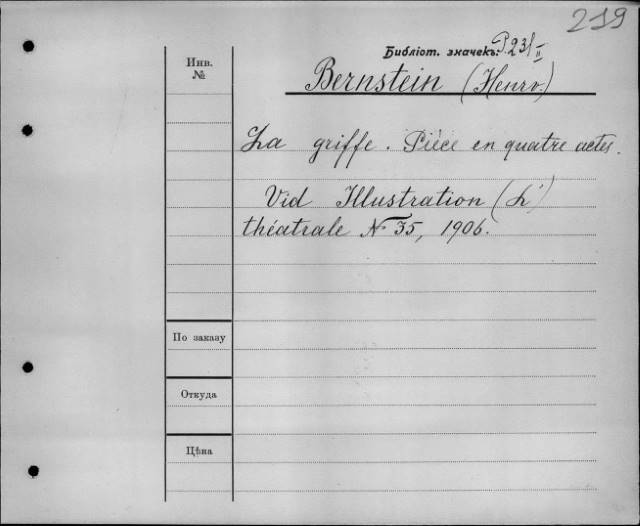 219
Библіот. значекъ: P.231 II
Инв. №
Bernstein (Henry)
La griffe. Pièce en quatre actes.
Vid Illustration (L')
théatrale № 35, 1906.
По заказу
Откуда
Цѣна